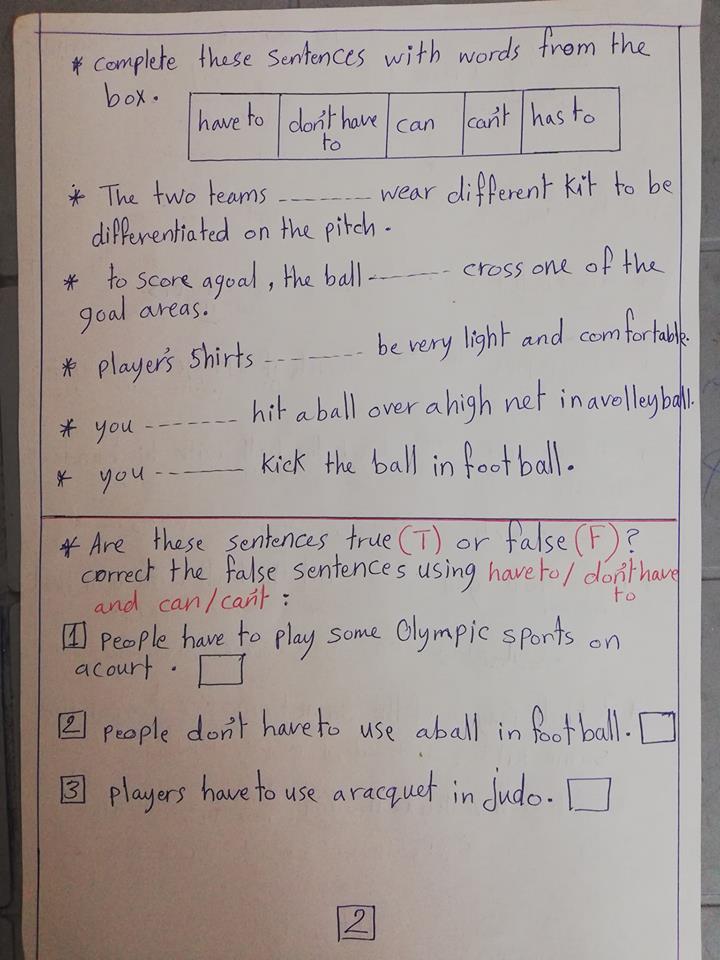 * Complete these sentences with words from the
box.
have to | don't have to | can | can't | has to
* The two teams ------- wear different kit to be
differentiated on the pitch.
* to score a goal, the ball ------- cross one of the
goal areas.
* player's shirts ------- be very light and comfortable.
* you ------- hit a ball over a high net in a volleyball.
* you ------- kick the ball in football.
* Are these sentences true (T) or false (F)?
correct the false sentences using have to / don't have to
and can / can't :
1 people have to play some Olympic sports on
a court.
2 people don't have to use a ball in football.
3 players have to use a racquet in judo.
2